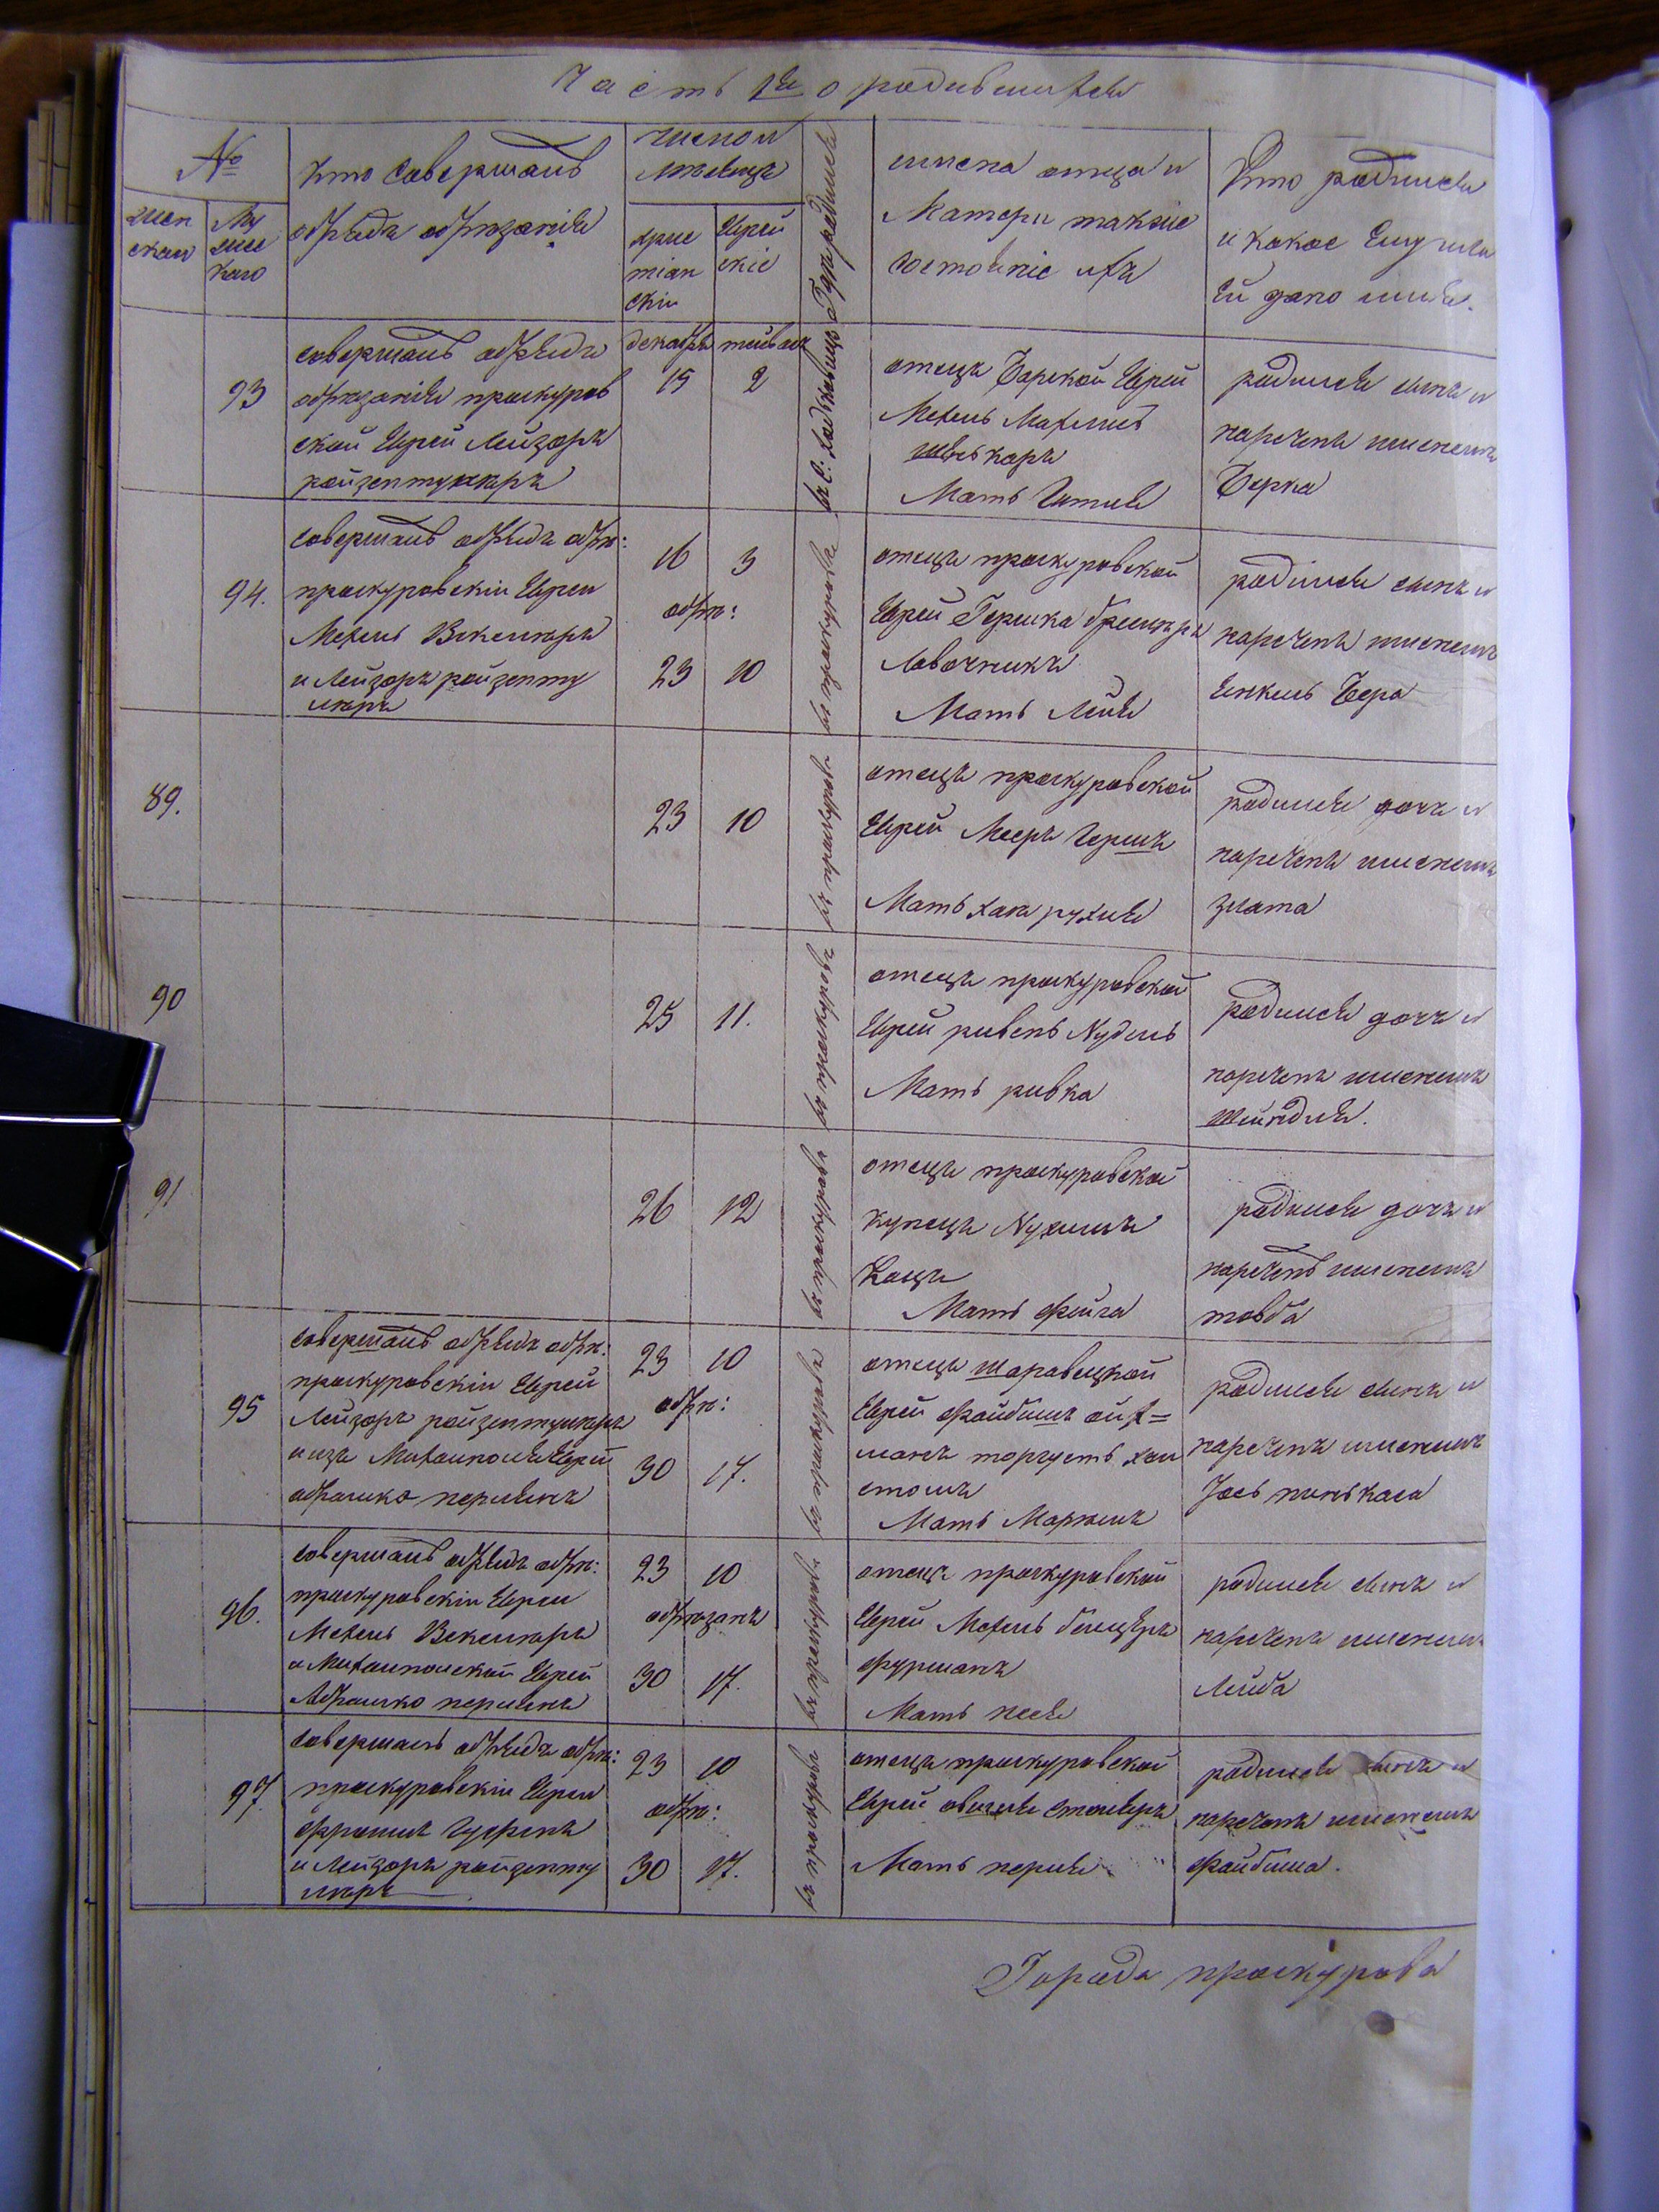 Часть 1я о родившихся
№
жен
скаго
Му
жес
каго
Кто совершалъ
обрядъ обрѣзанія
число и
мѣсяцъ
Хрис
тіан
скій
Еврей
скіе
Гдѣ родился
имена отца и
Матери также
состояніе ихъ
Кто родился
и какое Ему или
Ей дано имя.
93
совершалъ обрядъ
обрѣзанія проскуров
ской Еврей Лейзоръ
ройзентуллеръ
декабрь
15
тейвасъ
2
отецъ Барской Еврей
Мехель
Мать Гитля
родился сынъ и
нареченъ именемъ
Берка
94.
совершалъ обрядъ обрѣ:
проскуровскіи Евреи
Мехель Векслеръ
и Лейзоръ ройзенту
леръ
16
3
обрѣ:
23
10
въ проскуровѣ
отецъ проскуровской
Еврей Гершка
Лавочникъ
Мать Лея
родился сынъ и
нареченъ именемъ
Янкель Бера
89.
23
10
въ проскуровѣ
отецъ проскуровской
Еврей Мееръ Гершъ
Мать Хана рухля
родилась дочь и
наречена именемъ
злата
90
25
11.
въ проскуровѣ
отецъ проскуровской
Еврей рувенъ Нудель
Мать ривка
родилась дочь и
наречена именемъ
шейндля.
91
26
12
въ проскуровѣ
отецъ проскуровской
купецъ Нухимъ
Кацъ
Мать фейга
родилась дочь и
наречена именемъ
товба
95
совершалъ обрядъ обрѣ:
проскуровскіи Еврей
Лейзоръ ройзентуллеръ
и изъ Михалполя Еврей
абрамко перлинъ
23
10
обрѣ:
30
17.
въ проскуровѣ
отецъ шаравецкой
Еврей файбишъ ойх=
манъ торгуетъ хол
стомъ
Мать Маріемъ
родился сынъ и
нареченъ именемъ
Іось пинькаса
96.
совершалъ обрядъ обрѣ:
проскуровскіи Евреи
Мехель Векслеръ
и Михалпольской Еврей
Абрамко перлинъ
23
10
обрѣзанъ
30
17.
въ проскуровѣ
отецъ проскуровской
Еврей Мехель
фурманъ
Мать песя
родился сынъ и
нареченъ именемъ
Лейба
97.
совершалъ обрядъ обрѣ:
проскуровскіи Евреи
фроимъ
и Лейзоръ ройзенту
леръ
23
10
обрѣ:
30
17.
въ проскуровѣ
отецъ проскуровской
Еврей овшія столяръ
Мать перля
родился сынъ и
нареченъ именемъ
файбиша.
Города проскурова